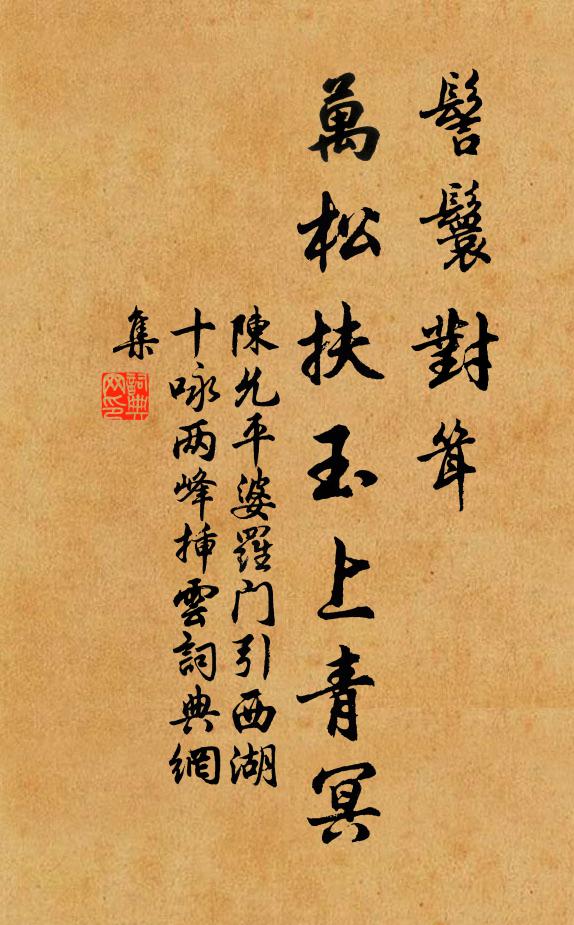 髻鬟對聳
萬松扶玉上青冥
陳允平婆羅門引西湖
十咏两峰挿雲詞典網
集
詞典网印